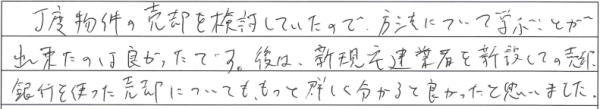 丁度物件の売却を検討していたので、方法について学ぶことが
出来たのは良かったです。後は、新規宅建業者を新設しての売却、
銀行を使った売却についても、もっと詳しく分かると良かったと思いました。